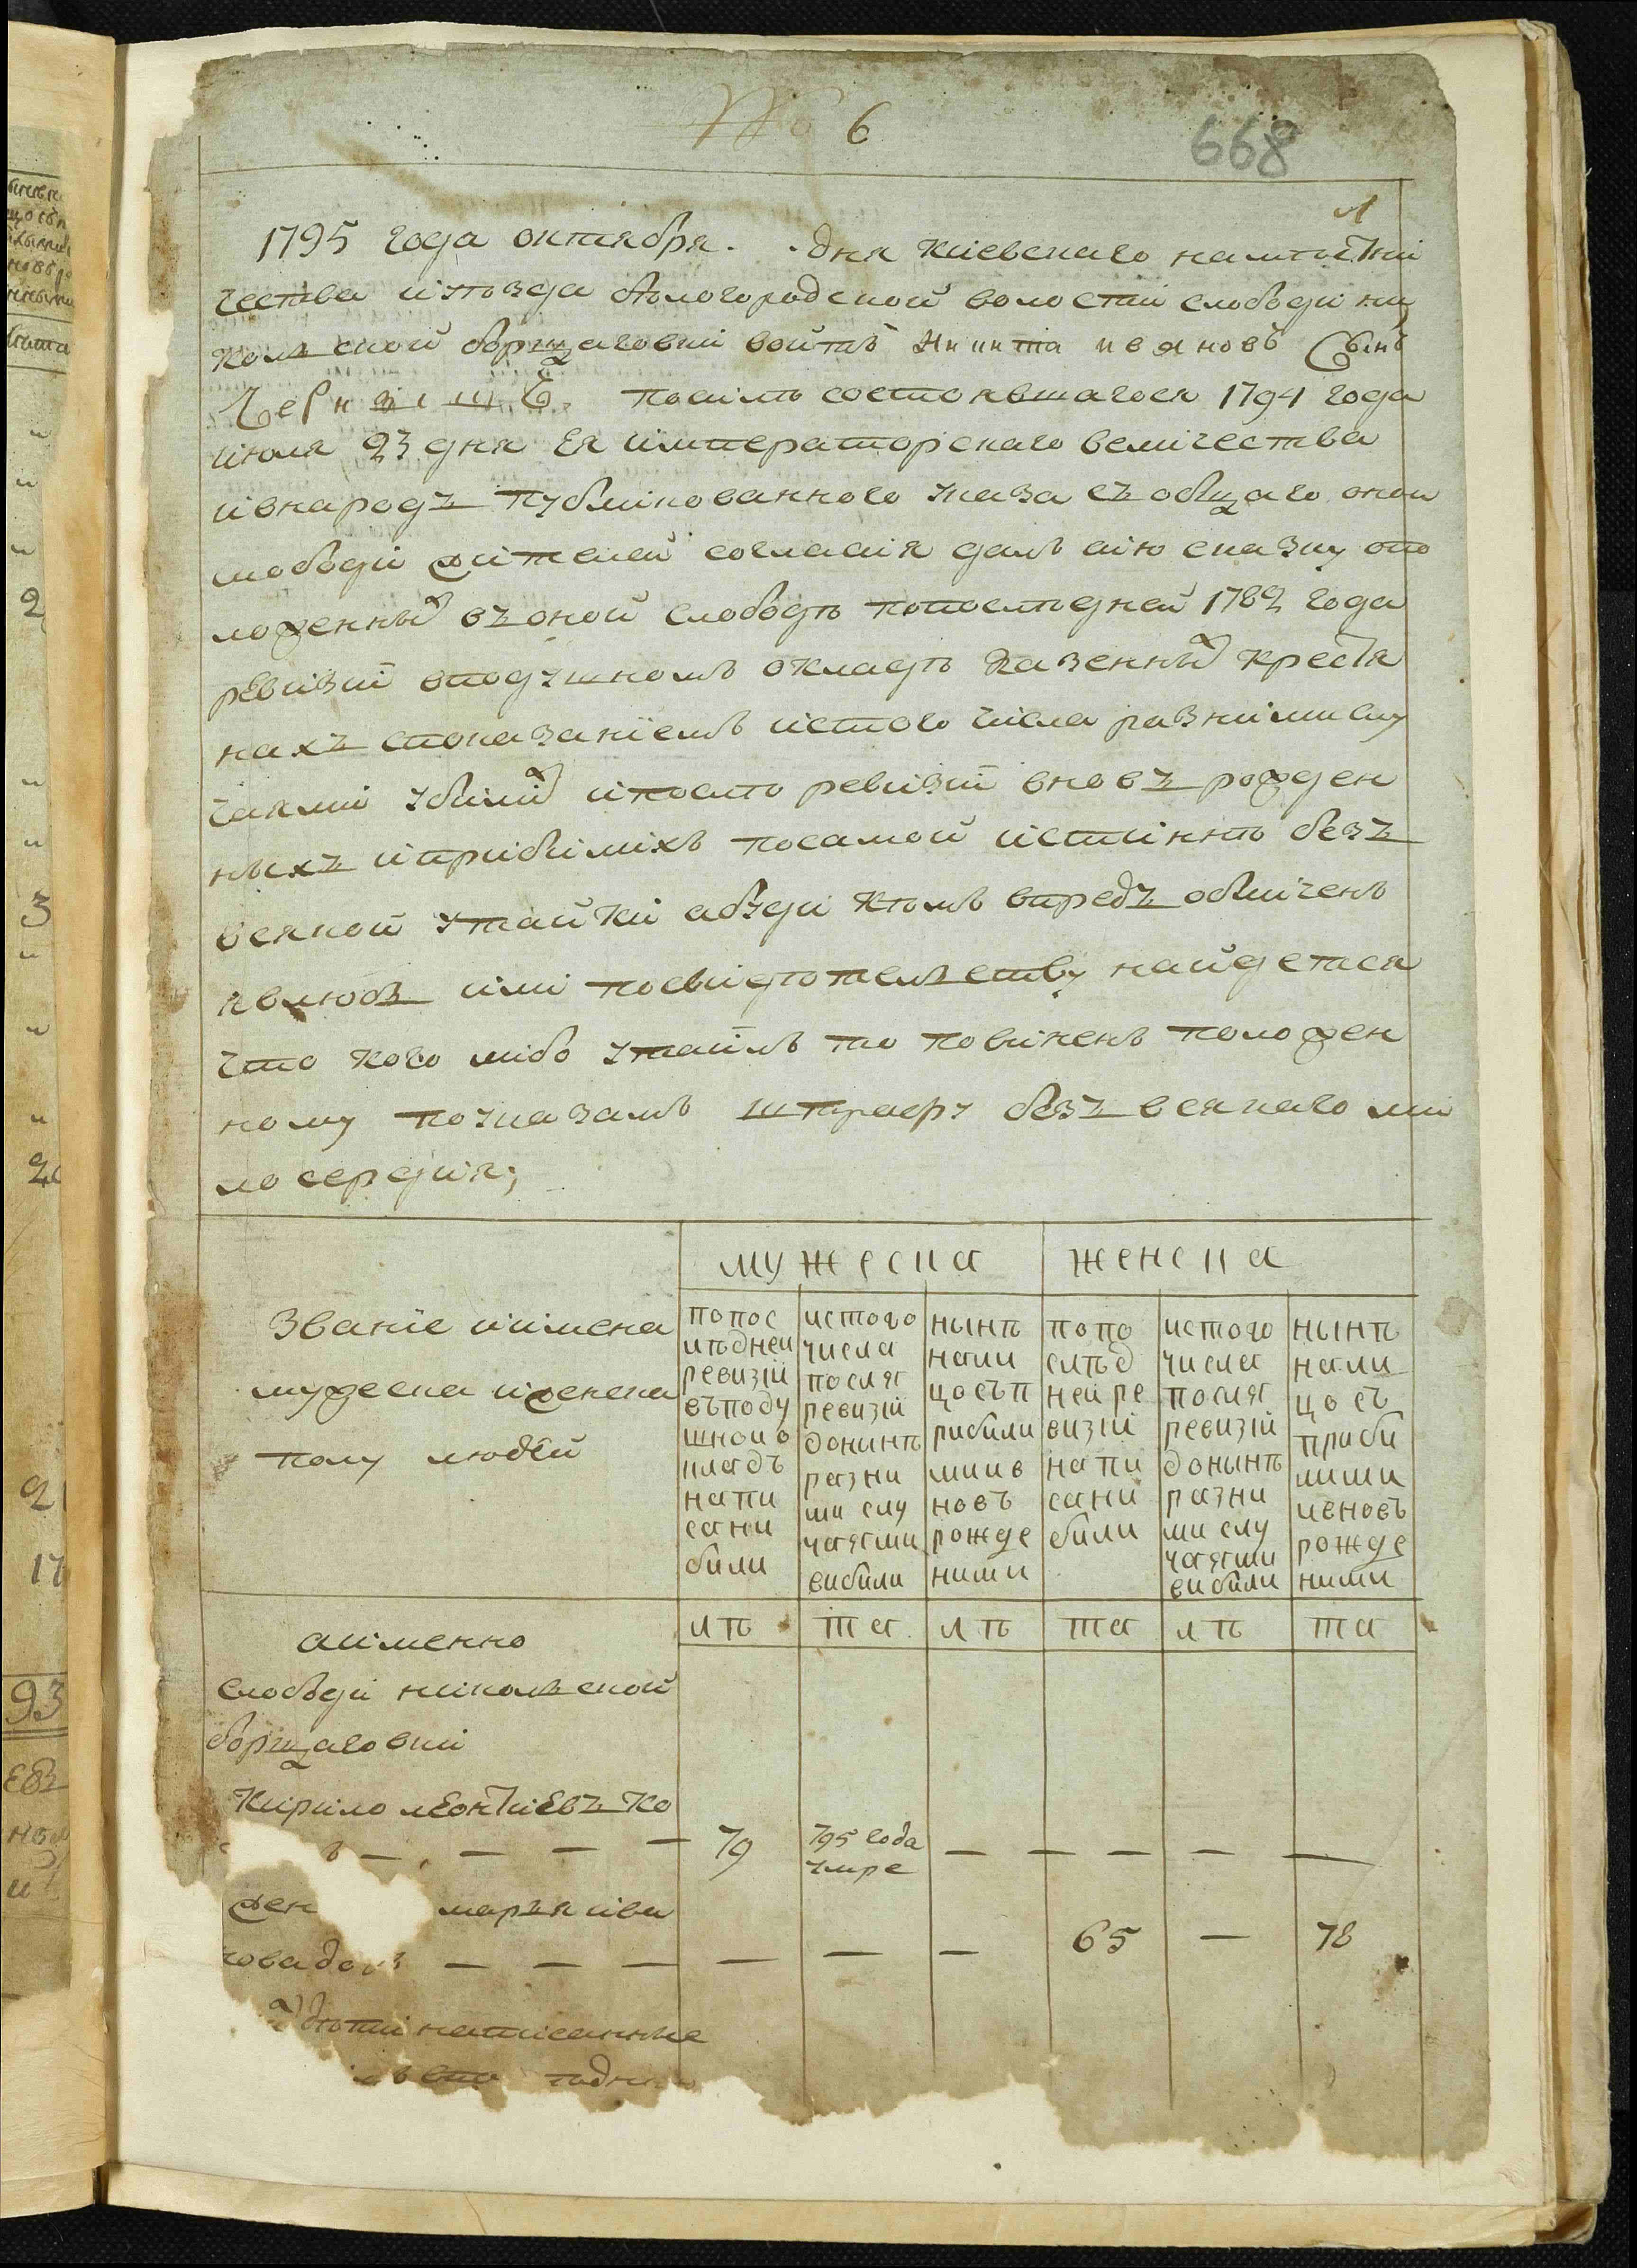 № 6
668
1795 года октября . . дня киевскаго намѣстни
чества иуѣзда бѣлогородской волости слободи ни
кольской борщаговки войтъ Никита ивановъ Сынъ
посилѣ состоявшагося 1794 года
июля 23 дня Ея императорскаго величества
ивнародъ публикованного указа съобщаго оной
слободи жителей согласия далъ сию сказку опо
ложенных въоной слободѣ попоследней 1782 года
ревизии вподушномъ окладѣ казенных крестя
нахъ спонаказаниемъ истого числа разними слу
чаями убилих ипосло ревизии вновъ рожден
ныхъ иприбилихъ посамой истиннѣ безъ
всякой утайки абуди кѣмъ впредъ обличенъ
явлюсь или посвидѣтельству найдется
что кого либо утаилъ то повиненъ положен
ному поуказамъ штрафу безъ всякаго ми
лосердия;
звание иимена
мужеска иженска
полу людей
мужеска
женска
попос
лѣдней
ревизій
въподу
шном о
кладъ
напи
сани
били
истого
числа
посля
ревизій
донынѣ
разни
ми слу
чаями
вибили
нынѣ
нали
цо съп
рибили
ми и в
новъ
рожде
ними
попо
слѣд
ней ре
визій
напи
сани
били
истого
числа
посля
ревизій
донынѣ
разни
ми слу
чаями
вибили
нынѣ
нали
цо съ
приби
лими
ивновъ
рожде
ними
лѣ та лѣ та лѣ та
аименно
слободи никольской
борщаговки
Кирило леонтиевъ ко
— — — — 79 795 года умре — — — — —
жен марья ива
нова до — — — — — — 65 — 78
дѣти написанные